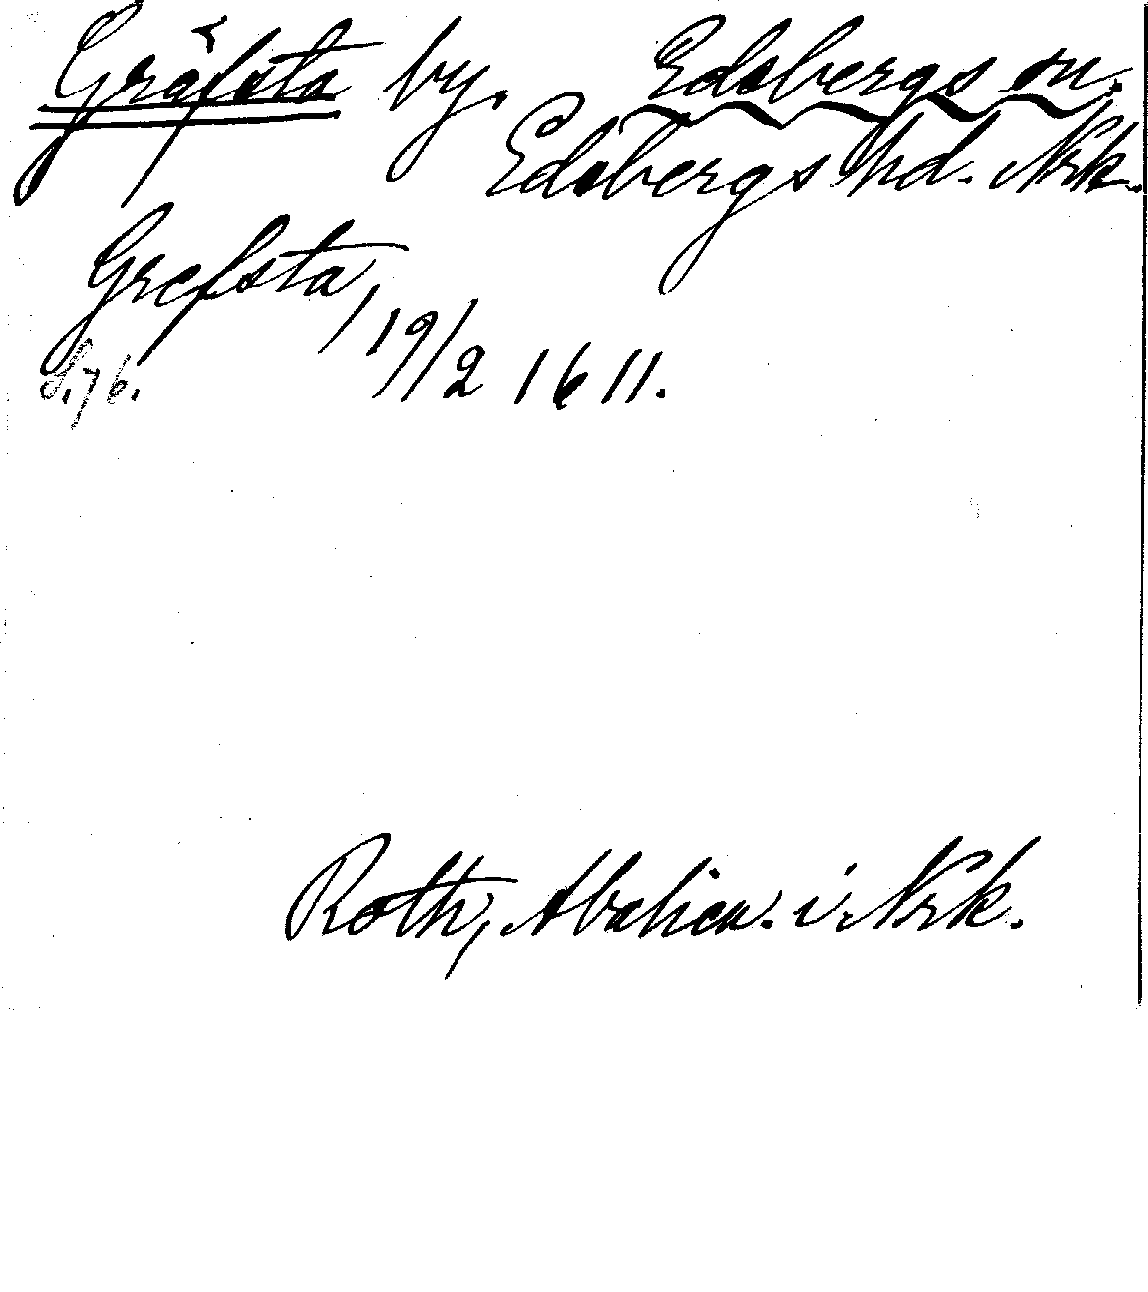 Gräfsta by. Edsbergs sn.
Edsbergs hd. Nrk.
Grefsta, 19/2 1611.
S. 76.
Roth, Abalien. i Nrk.